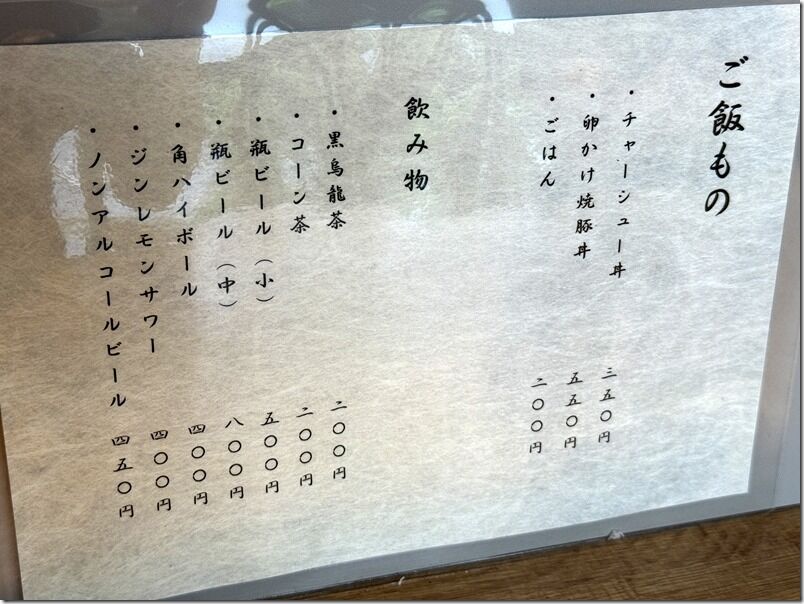 ご飯もの
・チャーシュー丼 三五〇円
・卵かけ焼豚丼 五五〇円
・ごはん 二〇〇円
飲み物
・黒烏龍茶 二〇〇円
・コーン茶 二〇〇円
・瓶ビール（小） 五〇〇円
・瓶ビール（中） 八〇〇円
・角ハイボール 四〇〇円
・ジンレモンサワー 四〇〇円
・ノンアルコールビール 四五〇円